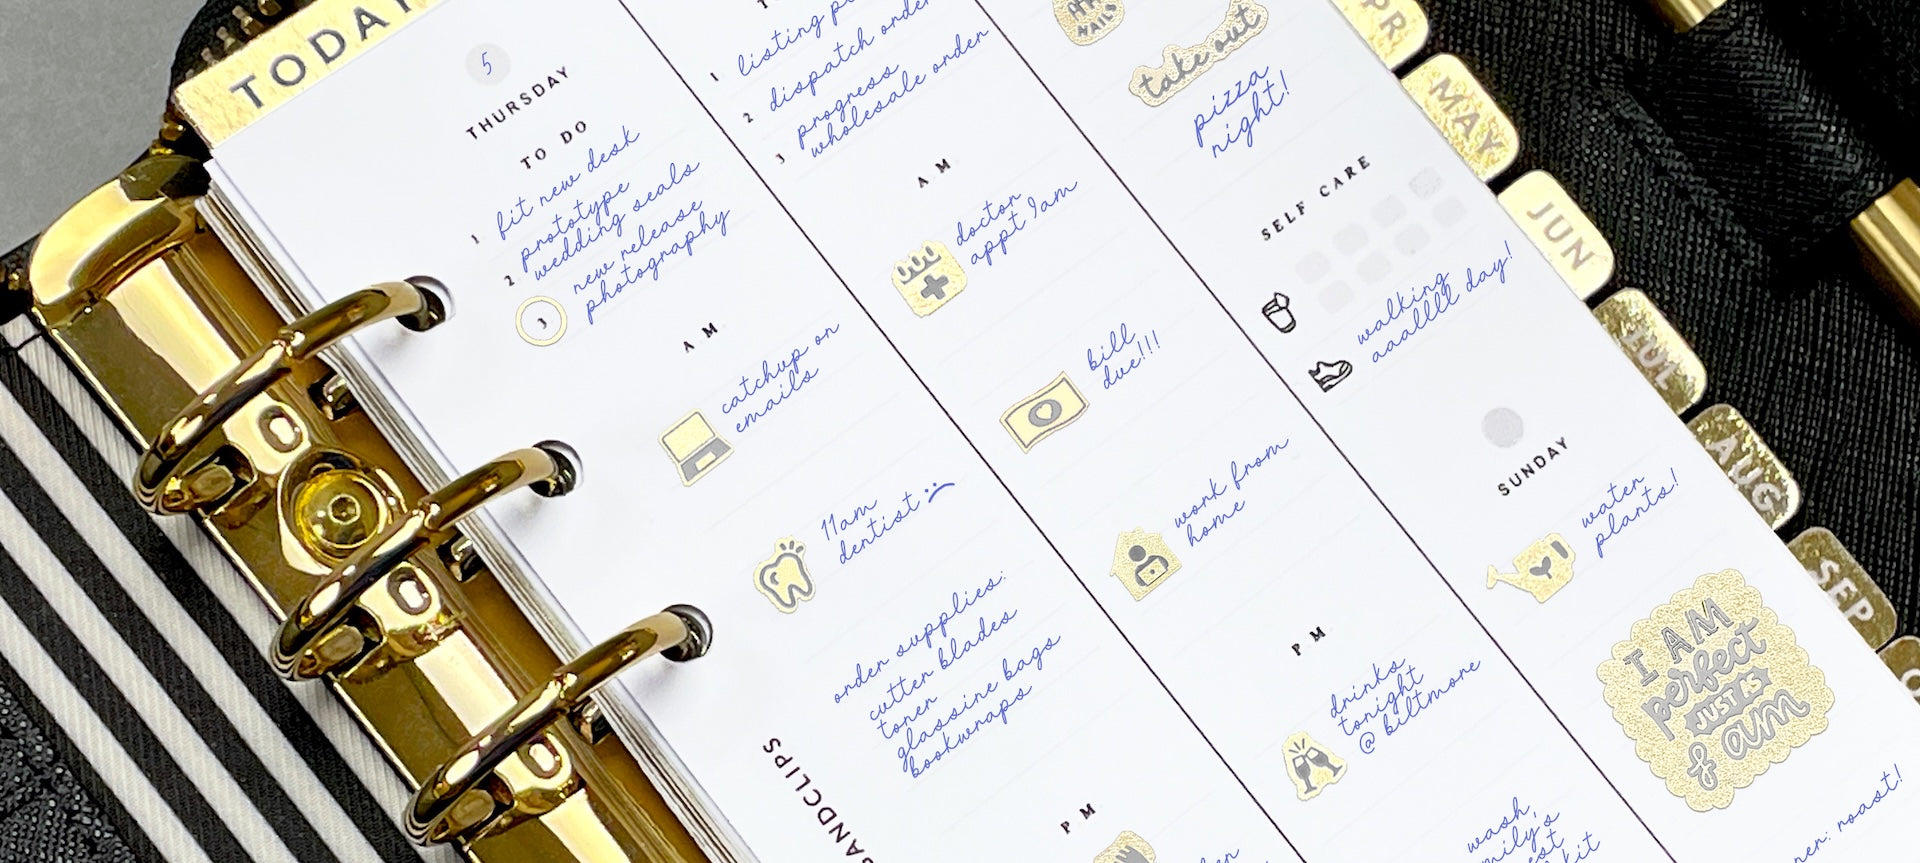 TODAY
5
THURSDAY
TO DO
1 fit new desk
2 prototype
wedding seals
3 new release
photography
AM
catchup on
emails
11am
dentist :(
order supplies:
cutter blades
toner
glassine bags
bookwraps
PM
1 listing
2 dispatch order
3 progress
wholesale order
AM
doctor
appt 9am
bill
due!!!
work from
home
PM
drinks
tonight
@ biltmore
wash,
NAILS
take out
pizza
night!
SELF CARE
walking
aaallll day!
SUNDAY
water
plants!
I AM
perfect
JUST AS
I am
roast!
MAY
JUN
JUL
AUG
SEP